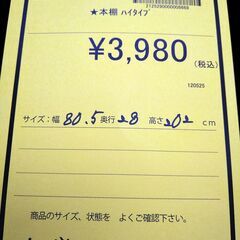 2125290000008669
★本棚 ハイタイプ
¥3,980
(税込)
120525
サイズ:幅 80.5 奥行 28 高さ 202 cm
商品のサイズ、状態を よくご確認下さい。